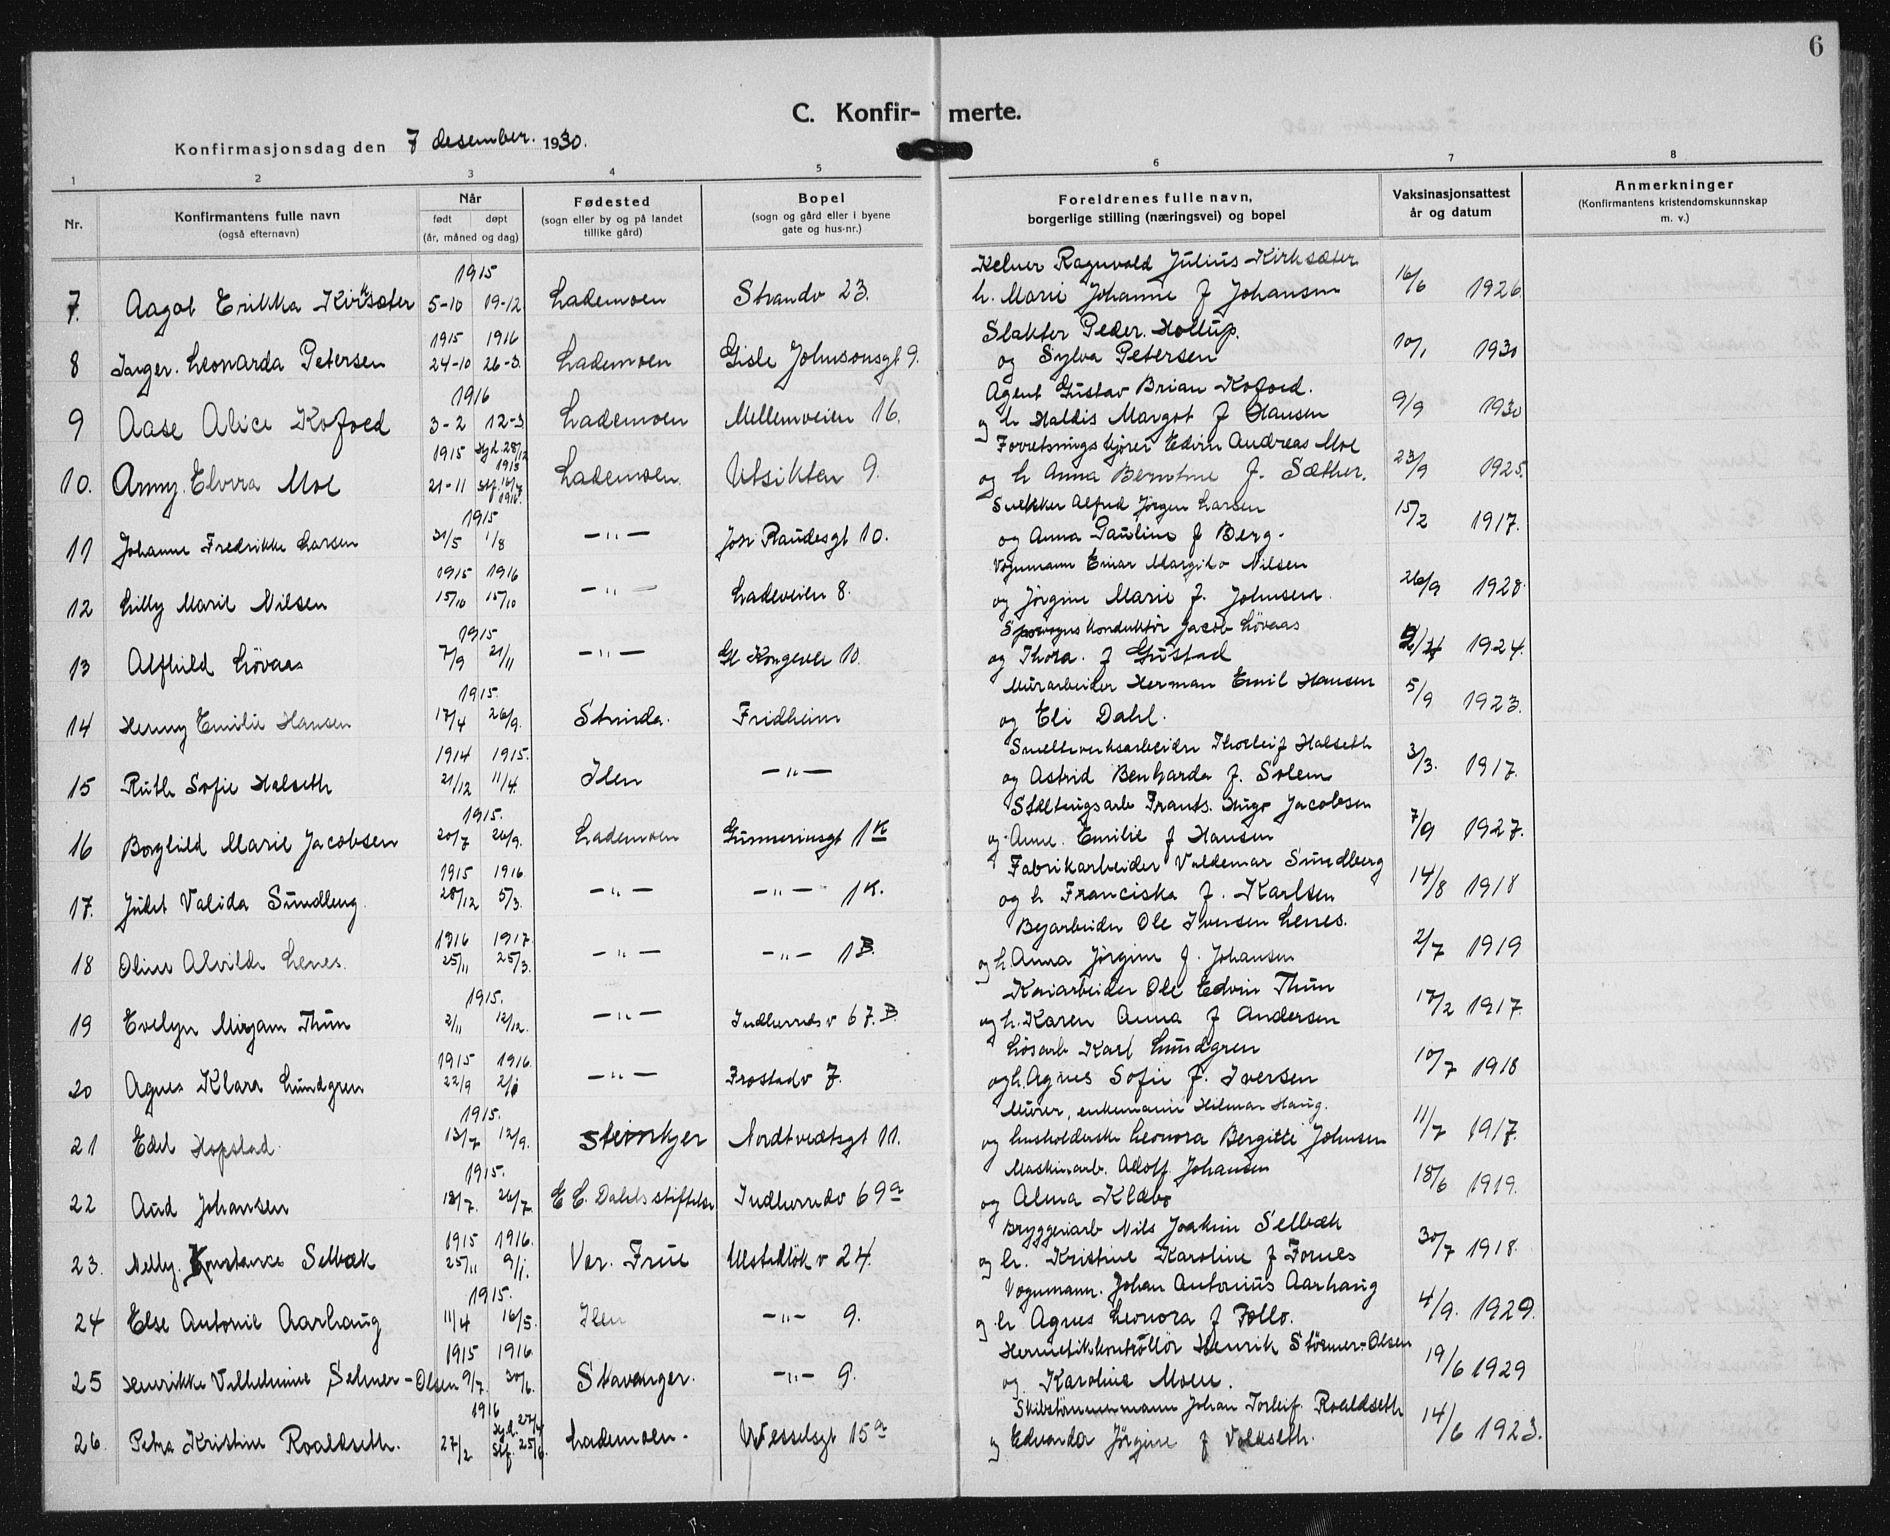 6
C. Konfir- merte.
Konfirmasjonsdag den 7 desember. 1930.
1 2 3 4 5 6 7 8
Nr. Konfirmantens fulle navn (også efternavn) Når født døpt (år, måned og dag) Fødested (sogn eller by og på landet tillike gård) Bopel (sogn og gård eller i byene gate og hus-nr.) Foreldrenes fulle navn, borgerlige stilling (næringsvei) og bopel Vaksinasjonsattest år og datum Anmerkninger (Konfirmantens kristendomskunnskap m. v.)
1915 Kelner Ragnvald Julius Kirksæter
7. Aagot Erikka Kirksæter 5-10 19-12 Lademoen Strandv 23. h. Marie Johanne f Johansen 16/6 1926
1915 1916 Slakter Peder. Hollup.
8 Inger. Leonarda Petersen 24-10 26-3. Lademoen Gisle Johnsonsgt 9. og Sylva Petersen 10/1 1930
1916 Agent Gustav Brian Kofoed.
9 Aase Alice Kofoed 3-2 12-3 Lademoen Mellemveien 16. og h Haldis Margot f Hansen 9/9 1930
1915 Hjd. 28/12 1915 Forretningskjører Edvin Andreas Moe
10. Anny Elvira Moe 21-11 Stf. 16/7 1916. Lademoen. Utsikten 9. og h Anna Berntine f. Sæther. 23/9 1925.
1915 Snekker Alfred Jørgen Larsen
11 Johanne Fredrikke Larsen 21/5 1/8 —"— Jøsse Raudesgt 10. og Anna Pauline f Berg. 15/2 1917.
1915 1916 Vognmann Einar Margido Nilsen
12 Lilly Marie Nilsen 15/10 15/10 —"— Ladeveien 8. og Jørgine Marie f. Johnsen. 26/9 1928.
1915 Sporvognskonduktør Jacob Løvaas
13 Alfhild Løvaas 7/9 21/11 —"— Gl Kongevei 10. og Thora. f Gustad 1924.
1915. Murarbeider Herman Emil Hansen
14 Henny Emilie Hansen 17/4 26/9. Strinda. Fridheim og Eli Dahl. 5/9 1923.
1914 1915. Smelteverksarbeider Thorleif Halseth
15 Ruth Sofie Halseth 21/12 11/4. Ilen —"— og Astrid Benharda f. Solem 3/3. 1917.
1915. Støltingsarb Frants. Hugo Jacobsen
16 Borghild Marie Jacobsen 20/7 26/9. Lademoen Gunnerusgt 1K og Anne. Emilie f Hansen 7/9 1927.
1915 1916 Fabrikarbeider Valdemar Sundberg
17. Juliet Valida Sundberg. 28/12 5/3. —"— —"— 1K. og h Franciska f. Karlsen 14/8 1918
1916 1917. Byarbeider Ole Iversen Lenes.
18 Oline Alvilde Lenes. 25/11 25/3. —"— —"— 1B. og h. Anna Jørgine f. Johansen 2/7 1919
1915. Kaiarbeider Ole Edvin Thun
19 Evelyn Mirjam Thun 2/11 12/12. —"— Indherredsv 67.B. og h. Karen Anna f Andersen 17/2 1917.
1915 1916. Løsarb Karl Lundgren
20 Agnes Klara Lundgren 22/9 —"— Frostadv 7. og h. Agnes Sofie f. Iversen 10/7 1918
1915. Murer, enkemann Hilmar Haug.
21 Edel Hopstad. 13/7 12/9. Steinkjer Nordtvedtsgt 11. og husholderske Leonora Bergitte Johnsen 11/7 1917.
1915. Maskinarb. Adolf Johansen
22 Aud Johansen 18/7. 26/7. E C. Dahls stiftelse Indherredv 69a og Alma Klæbo 18/6 1919.
1915 1916. Bryggeriarb Nils Joakim Selbæk
23. Nelly. Konstanse Selbæk 25/11 9/1. Vor. Frue Ulstadløk v 24. og h. Kristine Karoline f Fornes 30/7 1918.
1915. Vognmann. Johan Antonius Aarhaug
24 Else Antonie Aarhaug 11/4 16/5. Ilen —"— 9. og h Agnes Leonora f Follo. 4/9. 1929.
1915 1916 Hermetikkontrollør Henrik Størmer-Olsen
25 Henrikke Vilhelmine Selmer-Olsen 9/7. 30/6. Stavanger. —"— 9. og Karoline Moen. 19/6 1929
1916 Hjd. 27/4 Skibstømmermann Johan Torleif Roaldseth
26. Petra Kristine Roaldseth. 27/2 Stf. 25/6. Lademoen. Wesselsgt 15a og Edvarda Jørgine f Volseth. 14/6 1923.